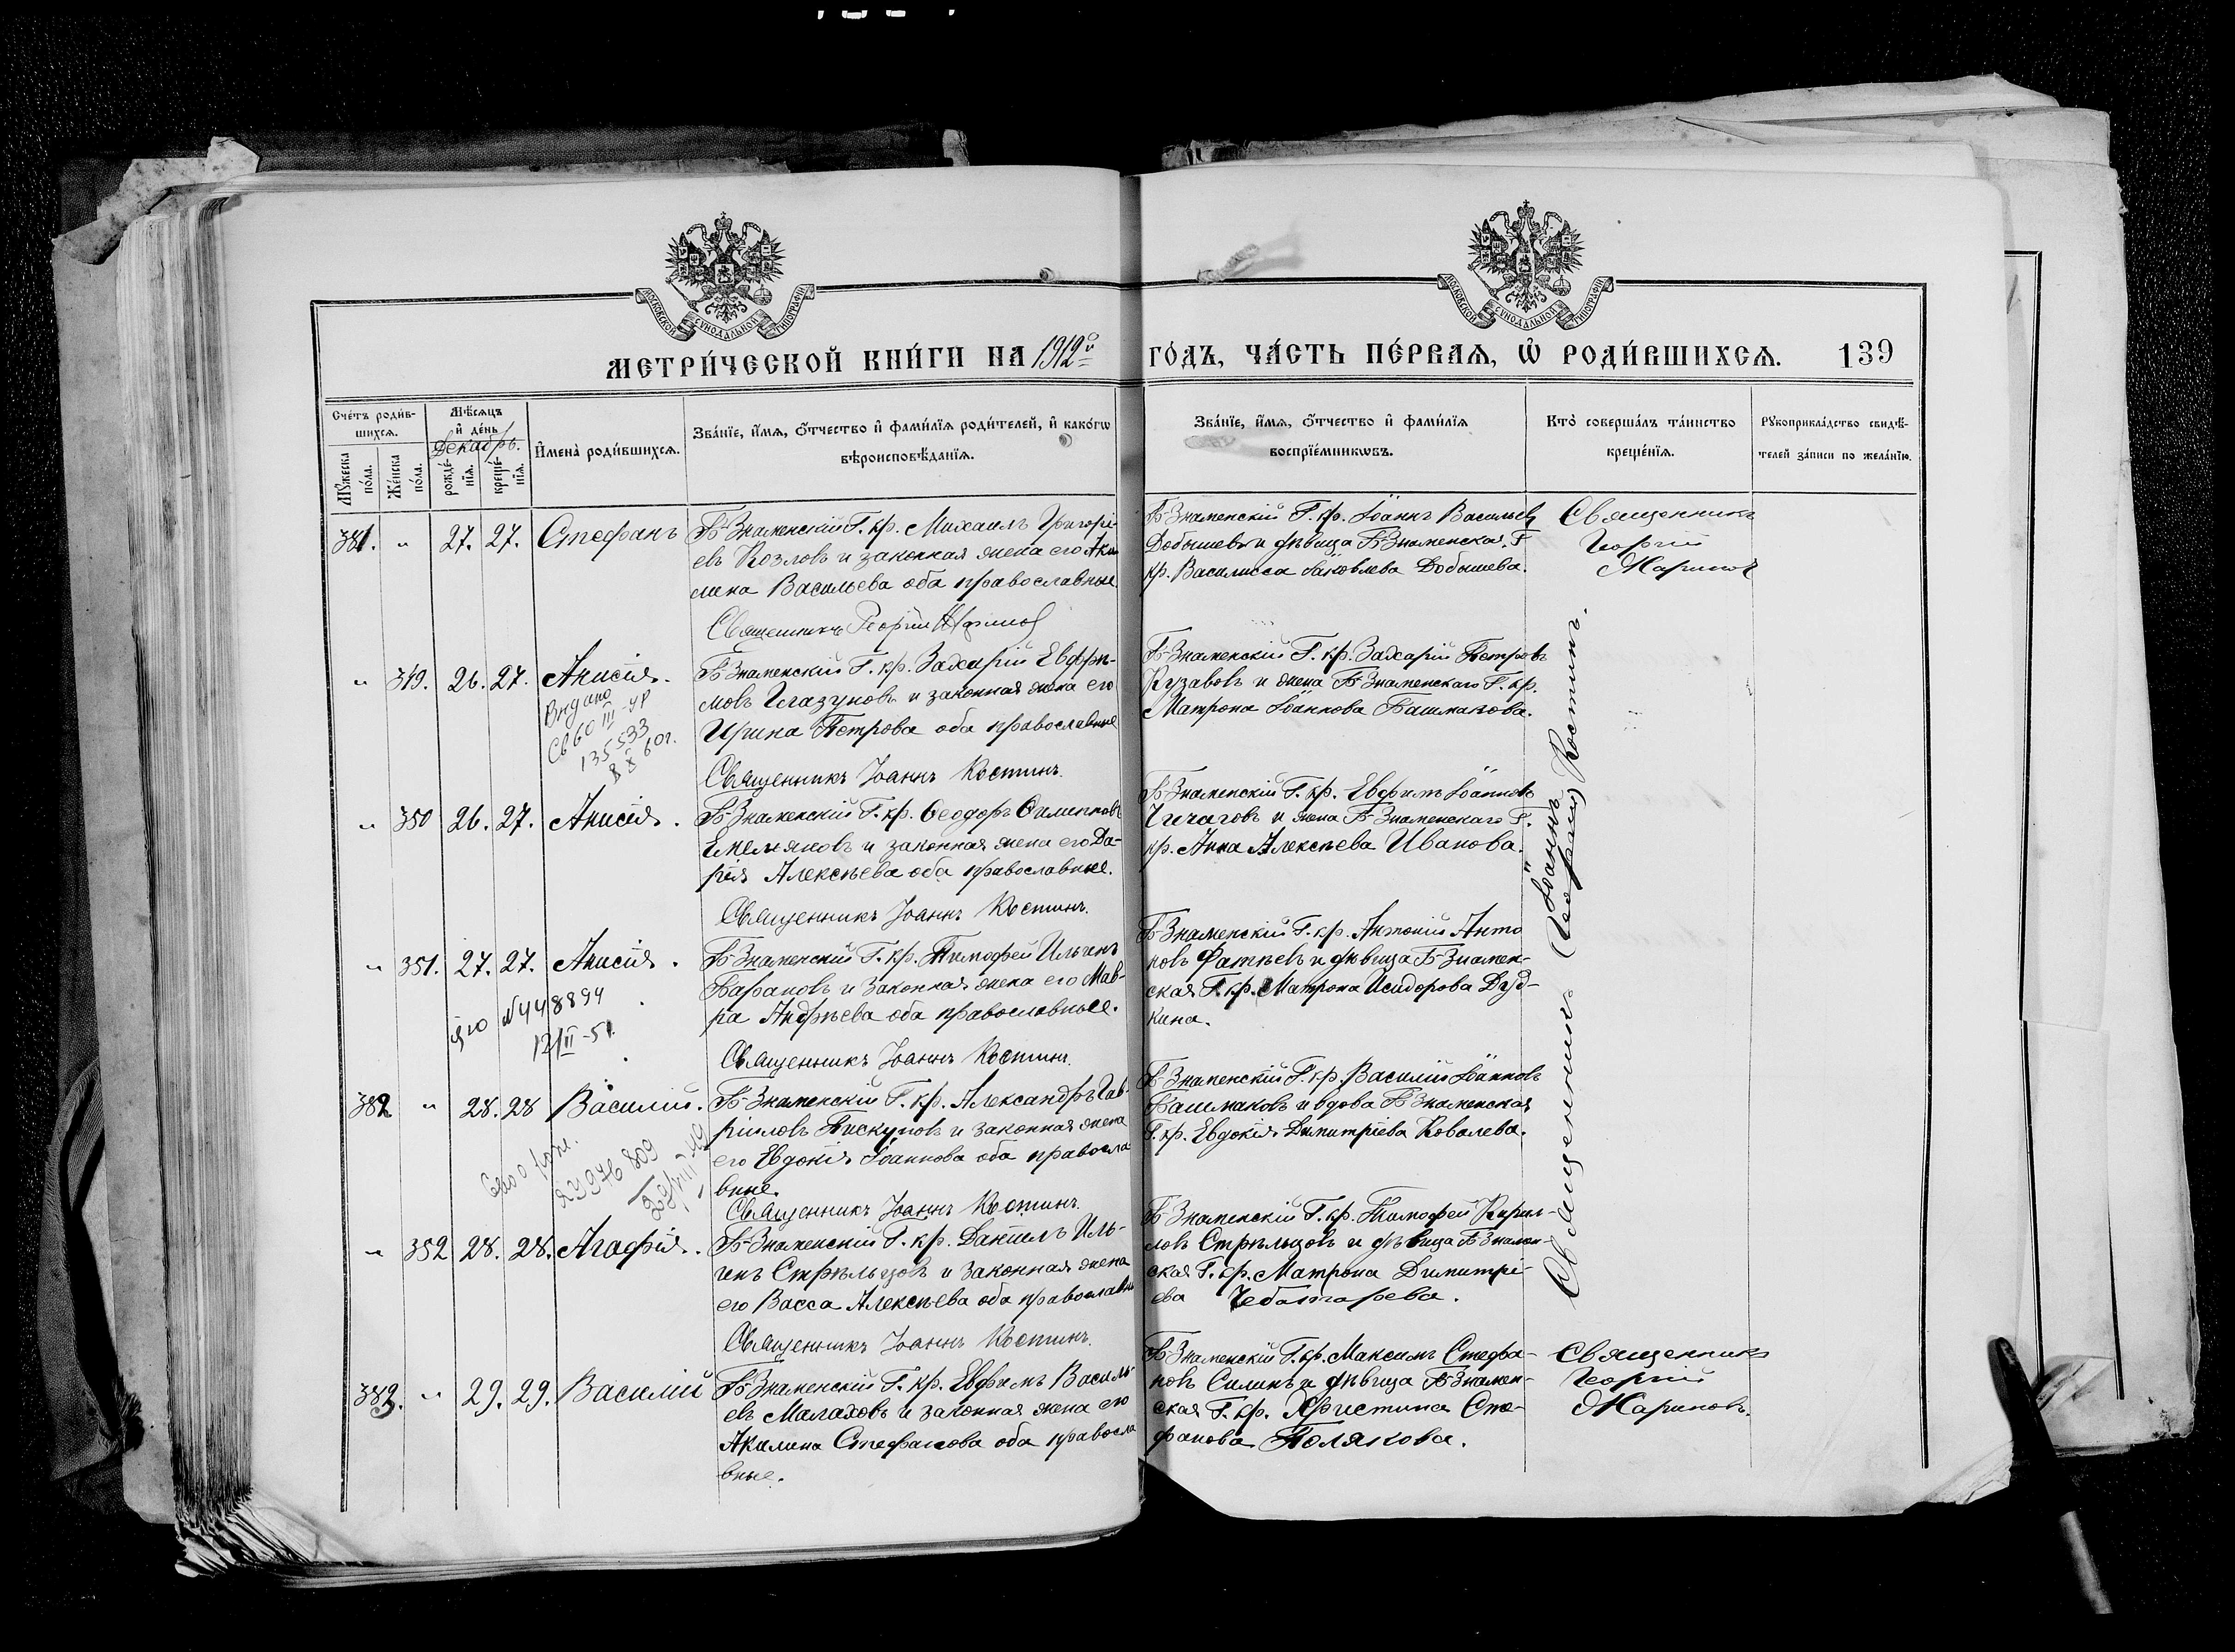 МОСКОВСКОЙ СѴНОДАЛЬНОЙ ТИПОГРАФІИ
МОСКОВСКОЙ СѴНОДАЛЬНОЙ ТИПОГРАФІИ
МЕТРИ́ЧЕСКОЙ КНИ́ГИ НА 1912й ГО́ДЪ, ЧА́СТЬ ПЕ́РВАЯ, Ѡ҆ РОДИ́ВШИХСЯ. 139
Сче́тъ роди́в-
шихся.
Мѣ́сяцъ
и҆ де́нь
Декабрь.
Мꙋ́жеска по́ла.
Же́нска по́ла.
рожде́-нїя.
креще́-нїя.
И҆мена̀ роди́вшихся.
Зва́нїе, и҆́мя, ѻ҆́тчество и҆ фами́лїя роди́телей, и҆ како́гѡ
вѣроисповѣ́данїя.
Зва́нїе, и҆́мя, ѻ҆́тчество и҆ фами́лїя
воспрїе́мникѡвъ.
Кто̀ соверша́лъ та́инство
креще́нїя.
Рꙋкоприкла́дство свидѣ́-
телей за́писи по жела́нїю.
381. " 27. 27. Стефанъ
Б-Знаменскій Г. кр. Михаилъ Григорі-
евъ Козловъ и законная жена его Аки
лина Васильева оба православные
Священникъ Георгій Маринов
Б-Знаменскій Г. кр. Іоаннъ Васильев
Добышевъ и дѣвица Б-Знаменская Г
кр. Василисса Іаковлева Добышева.
Священникъ
Георгій
Маринов
" 349. 26. 27. Анисія.
Выдано
135533
Б-Знаменскій Г. кр. Захарій Евфи-
мовъ Глазуновъ и законная жена его
Ирина Петрова оба православные
Священникъ Іоаннъ Костинъ.
Б-Знаменскій Г. кр. Захарій Петровъ
Кузавовъ и жена Б-Знаменскаго Г. кр.
Матрона Іоаннова Башмакова.
" 350 26. 27. Анисія.
Б-Знаменскій Г. кр. Ѳеодоръ Филипповъ
Емельяновъ и законная жена его Да-
рія Алексѣева оба православные.
Священникъ Іоаннъ Костинъ.
Б-Знаменскій Г. кр. Евфимъ Іоанновъ
Чичаговъ и жена Б-Знаменскаго Г.
кр. Анна Алексѣева Иванова.
" 351. 27. 27. Анисія.
№448894
12/II-51.
Б-Знаменскій Г. кр. Тимофей Ильинъ
Барановъ и законная жена его Мав-
ра Андрѣева оба православные.
Священникъ Іоаннъ Костинъ.
Б-Знаменскій Г. кр. Антоній Анто
новъ Фатѣевъ и дѣвица Б-Знамен-
ская Г. кр. Матрона Исидорова Дуд-
кина.
382 " 28. 28 Василій.
Б-Знаменскій Г. кр. Александръ Гав-
ріиловъ Пискуновъ и законная жена
его Евдокія Іоаннова оба правосла
вные.
Священникъ Іоаннъ Костинъ.
Б-Знаменскій Г. кр. Василій Іоанновъ
Башмаковъ и вдова Б-Знаменская
Г. кр. Евдокія Димитріева Ковалева.
" 352 28. 28. Агафія.
Б-Знаменскій Г. кр. Даніилъ Иль-
инъ Стрѣльцовъ и законная жена
его Васса Алексѣева оба православны
Священникъ Іоаннъ Костинъ.
Б-Знаменскій Г. кр. Тимофей Кирил-
ловъ Стрѣльцовъ и дѣвица Б-Знамен-
ская Г. кр. Матрона Димитрі-
ева Чеботарева.
Священникъ (Георгій) Іоаннъ Костинъ.
383. " 29. 29. Василій
Б-Знаменскій Г. кр. Евфимъ Василь-
евъ Малаховъ и законная жена его
Акилина Стефанова оба правосла
вные.
Б-Знаменскій Г. кр. Максимъ Стефа-
новъ Силинъ и дѣвица Б-Знамен-
ская Г. кр. Христина Сте-
фанова Полякова.
Священникъ
Георгій
Мариновъ.